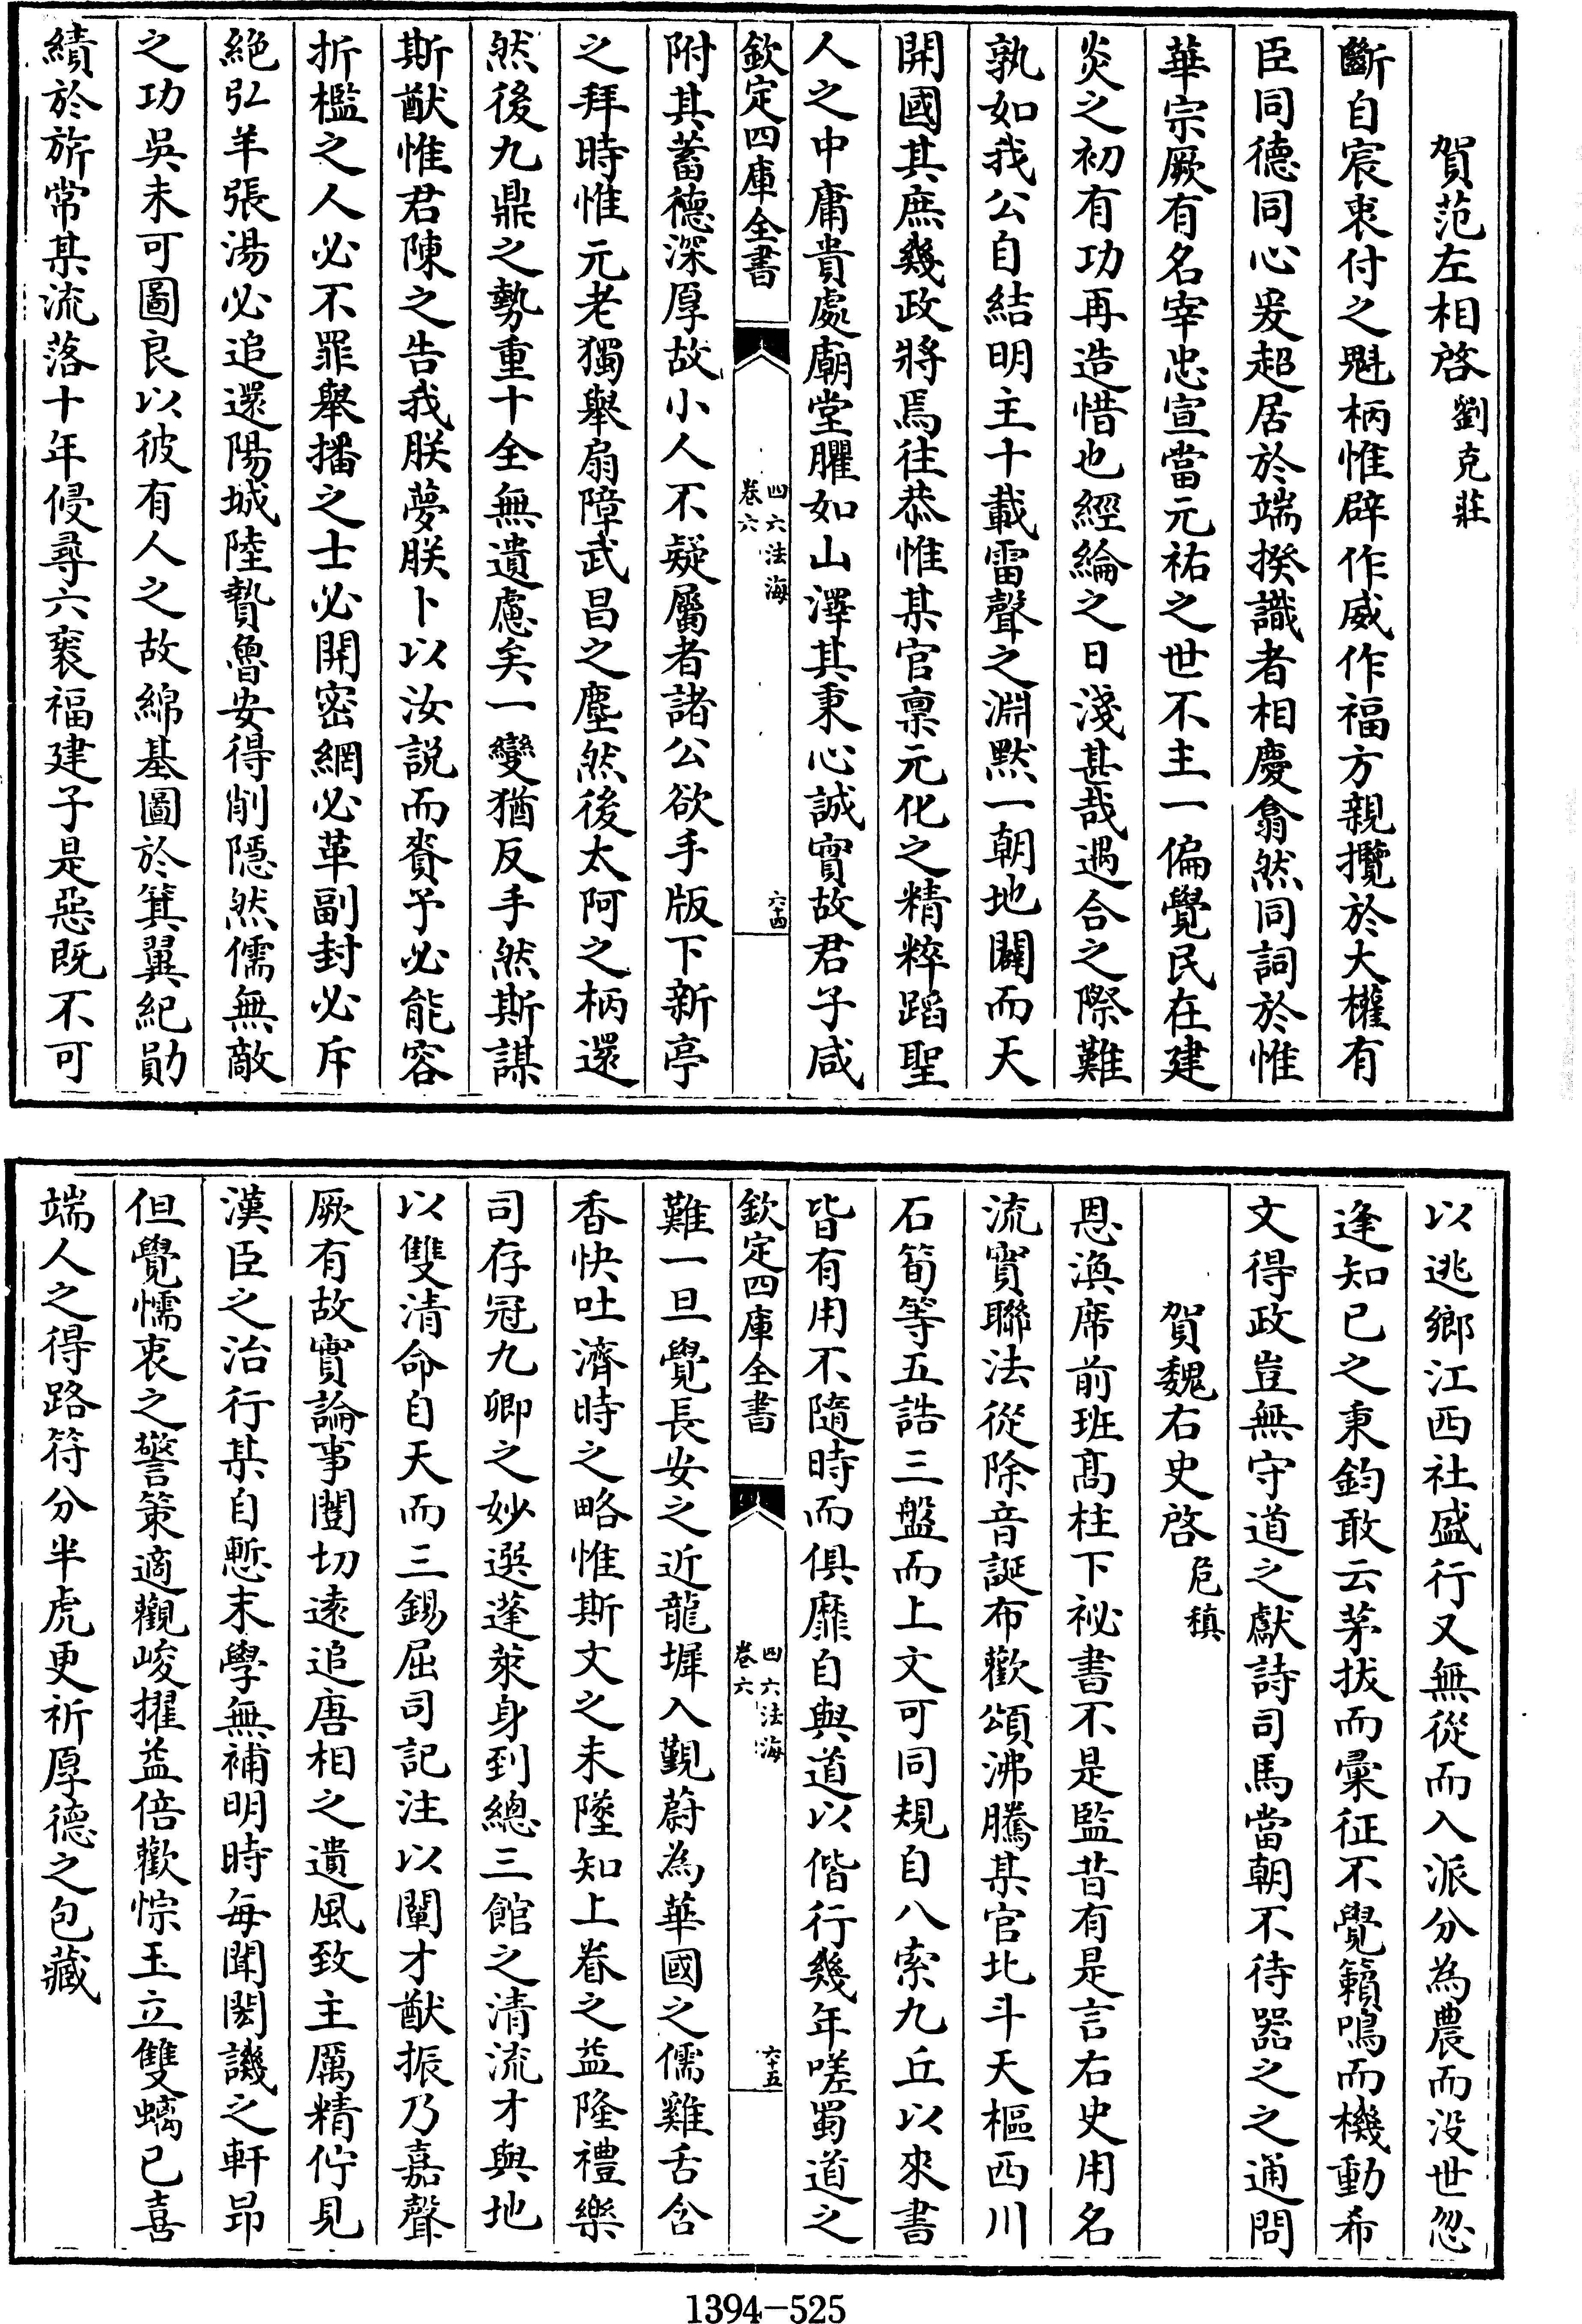 賀范左相啓 劉克莊
斷自宸衷付之魁柄惟辟作威作福方親攬於大權有
臣同德同心爰超居於端揆識者相慶翕然同詞於惟
華宗厥有名宰忠宣當元祐之世不主一偏覺民在建
炎之初有功再造惜也經綸之日淺甚哉遇合之際難
孰如我公自結明主十載雷聲之淵默一朝地闢而天
開國其庶幾政將焉往恭惟某官禀元化之精粹蹈聖
人之中庸貴處廟堂臞如山澤其秉心誠實故君子咸
欽定四庫全書
四六法海
卷六
六十四
附其蓄德深厚故小人不疑屬者諸公欲手版下新亭
之拜時惟元老獨舉扇障武昌之塵然後太阿之柄還
然後九鼎之勢重十全無遺慮矣一變猶反手然斯謀
斯猷惟君陳之告我朕夢朕卜以汝説而賚予必能容
折檻之人必不罪舉播之士必開密網必革副封必斥
絶弘羊張湯必追還陽城陸贄魯安得削隠然儒無敵
之功吳未可圖良以彼有人之故綿基圖於箕翼紀勛
績於旂常某流落十年侵尋六袠福建子是惡既不可
以逃鄉江西社盛行又無從而入派分為農而没世忽
逢知已之秉鈞敢云茅拔而彙征不覺籟鳴而機動希
文得政豈無守道之獻詩司馬當朝不待器之之通問
賀魏右史啓 危稹
恩渙席前班髙柱下祕書不是監昔有是言右史用名
流實聯法從除音誕布歡頌沸騰某官北斗天樞西川
石筍等五誥三盤而上文可同規自八索九丘以來書
皆有用不隨時而俱靡自與道以偕行幾年嗟蜀道之
欽定四庫全書
四六法海
卷六
六十五
難一旦覺長安之近龍墀入覲蔚為華國之儒雞舌含
香快吐濟時之略惟斯文之未墜知上眷之益隆禮樂
司存冠九卿之妙選蓬萊身到總三館之清流才與地
以雙清命自天而三錫屈司記注以闡才猷振乃嘉聲
厥有故實論事闓切逺追唐相之遺風致主厲精佇見
漢臣之治行某自慙末學無補明時每聞閎議之軒昂
但覺懦衷之警策適觀峻擢益倍歡悰玉立雙螭已喜
端人之得路符分半虎更祈厚德之包藏
1394-525